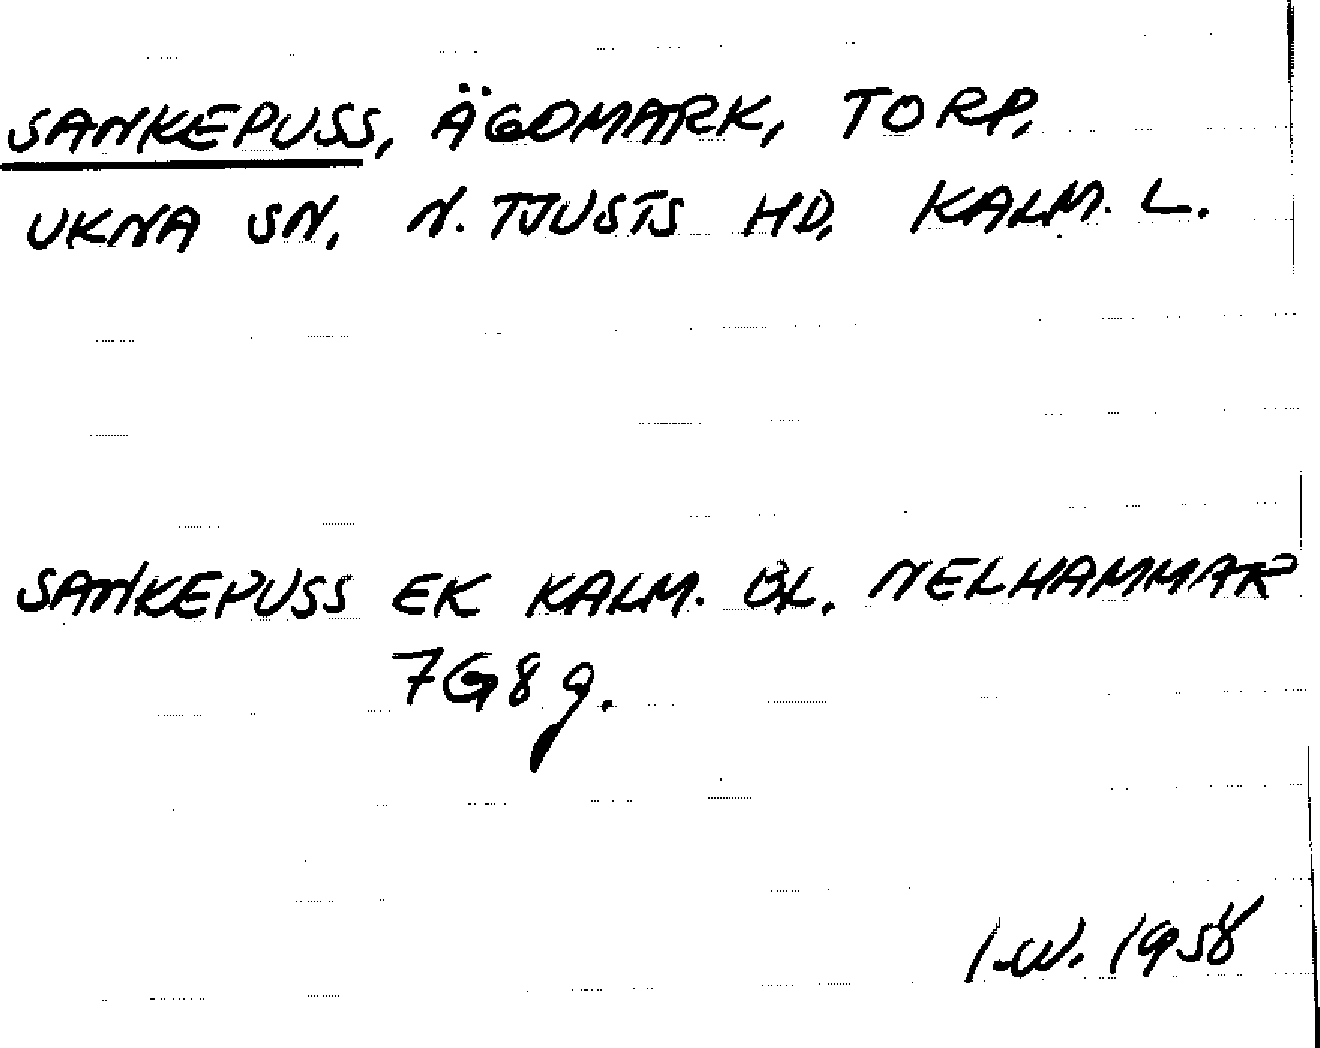 SANKEPUSS, ÄGOMARK, TORP,
UKNA SN, N. TJUSTS HD, KALM. L.
SANKEPUSS EK KALM. BL. NELHAMMAR
7G8g.
I.W. 1958